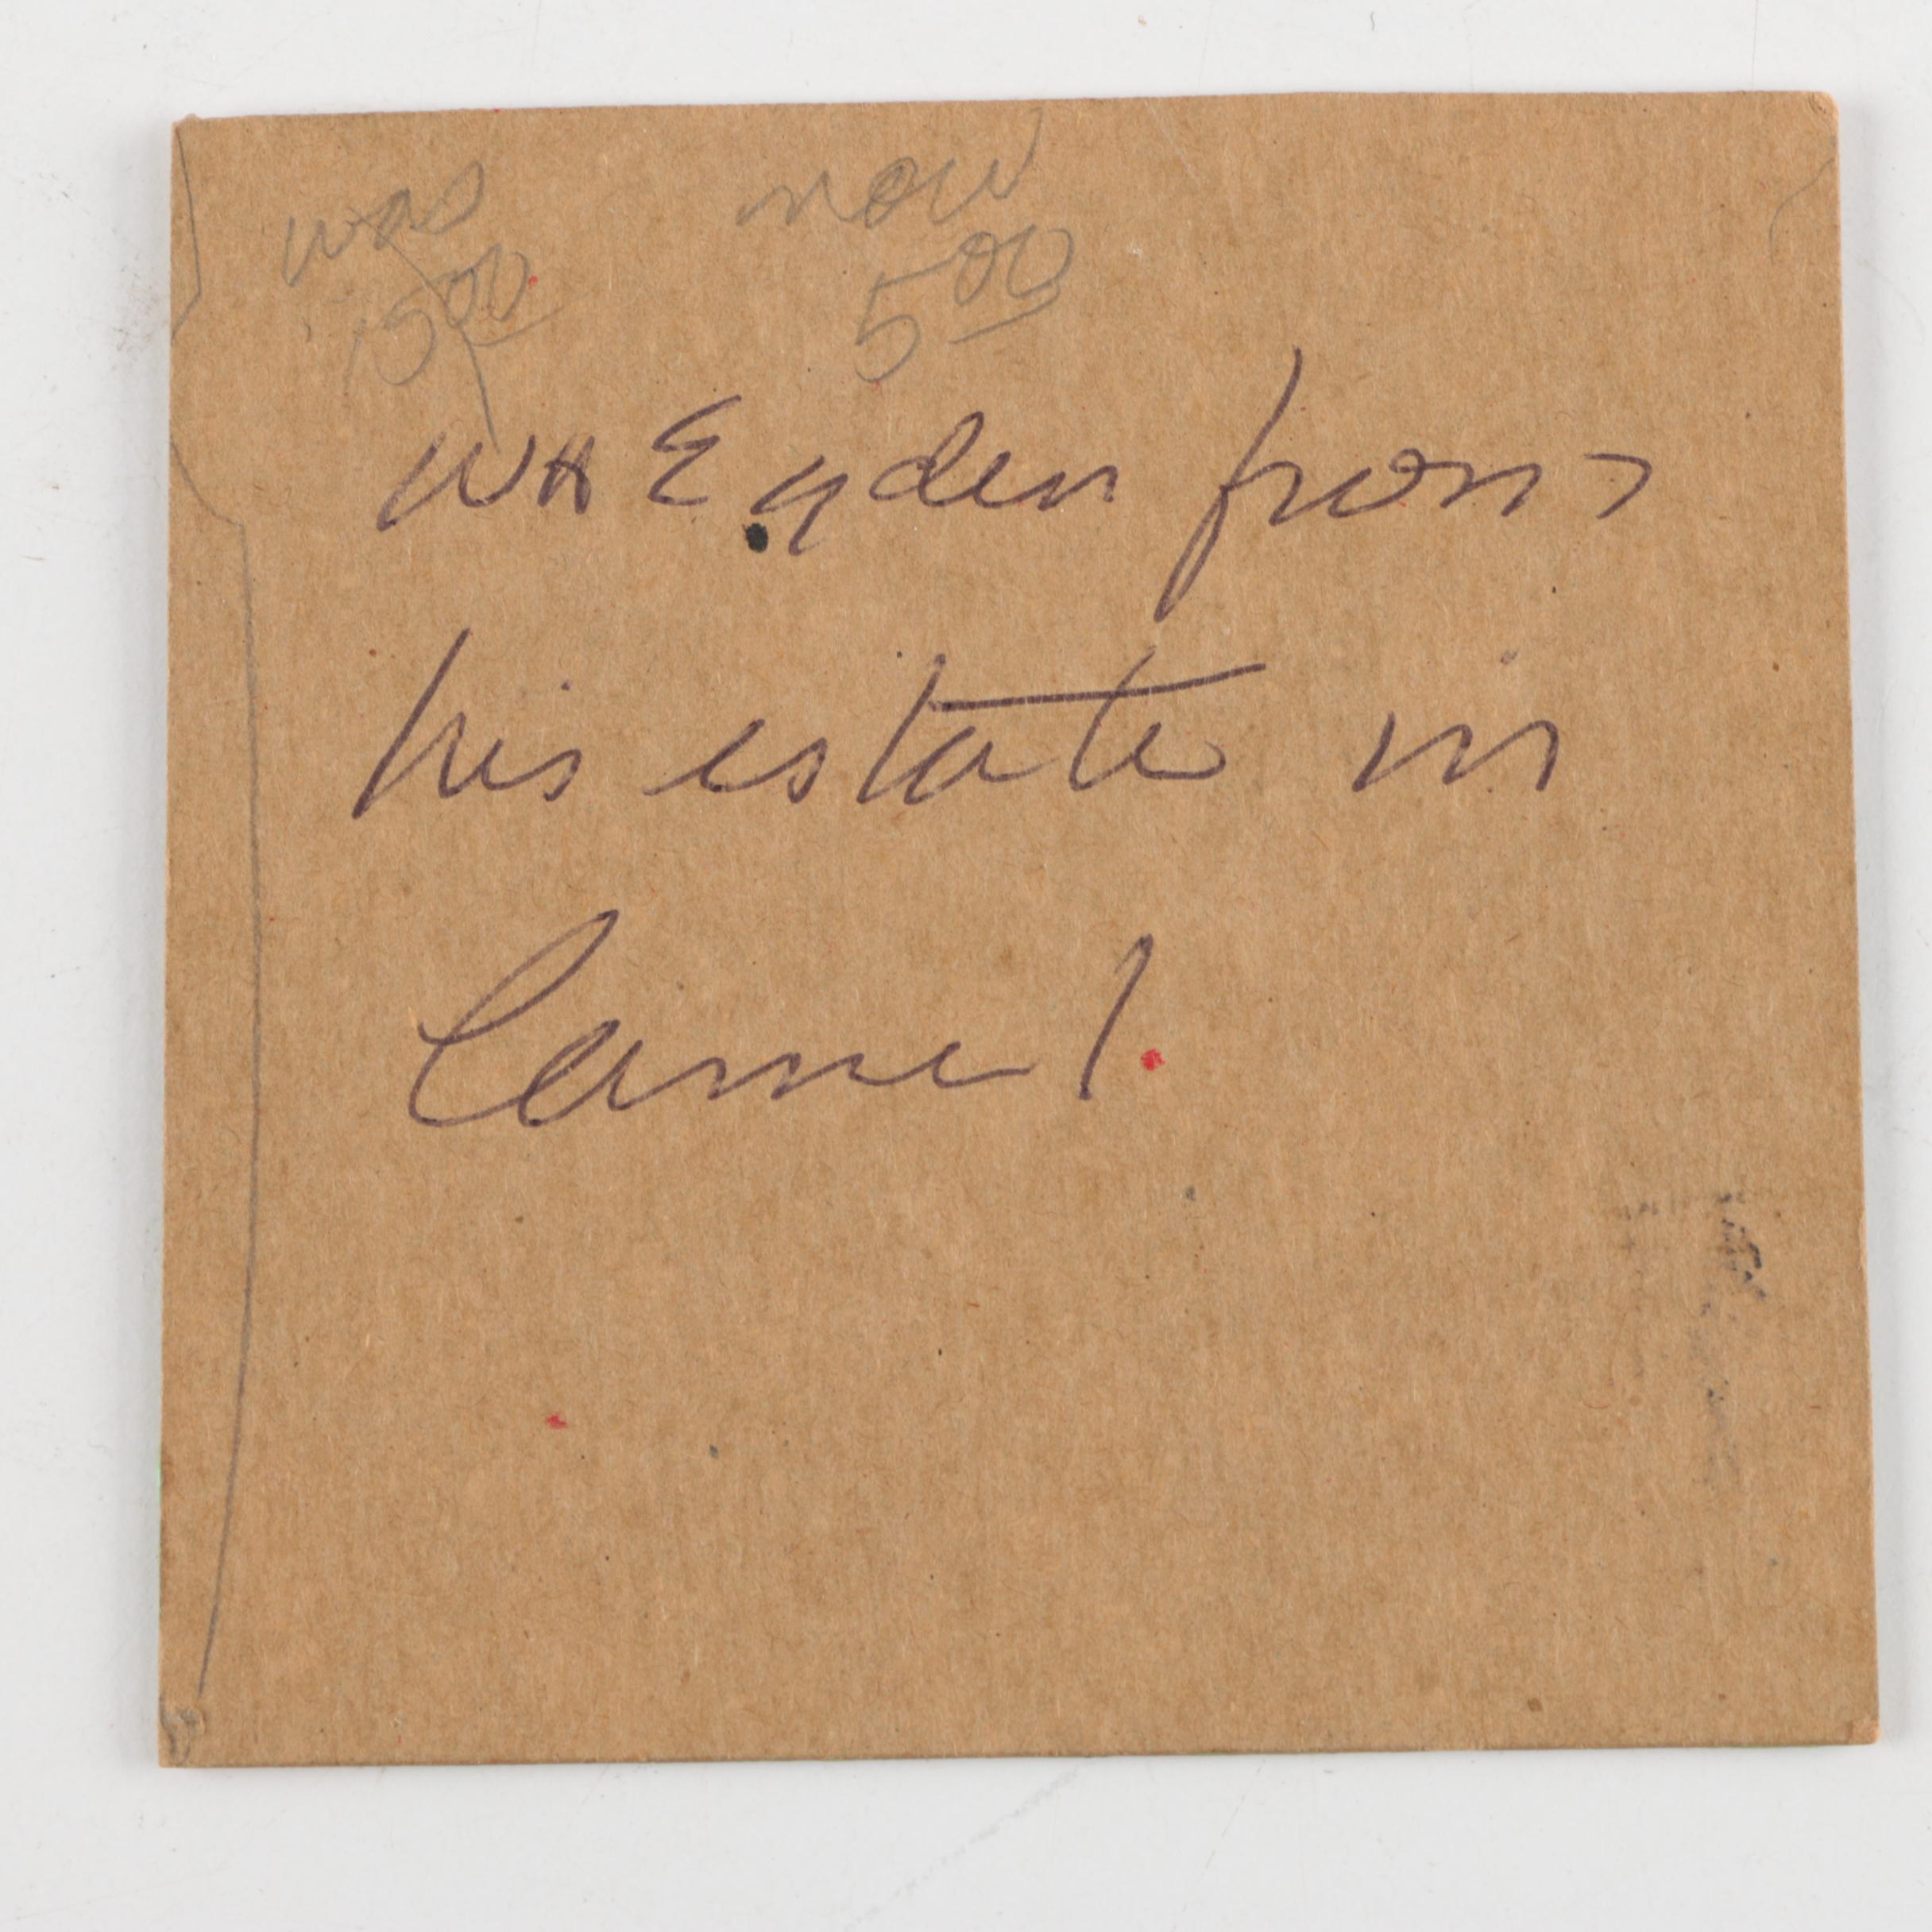 was now
15 00 5 00
WH Eyden from
his estate in
Carmel.